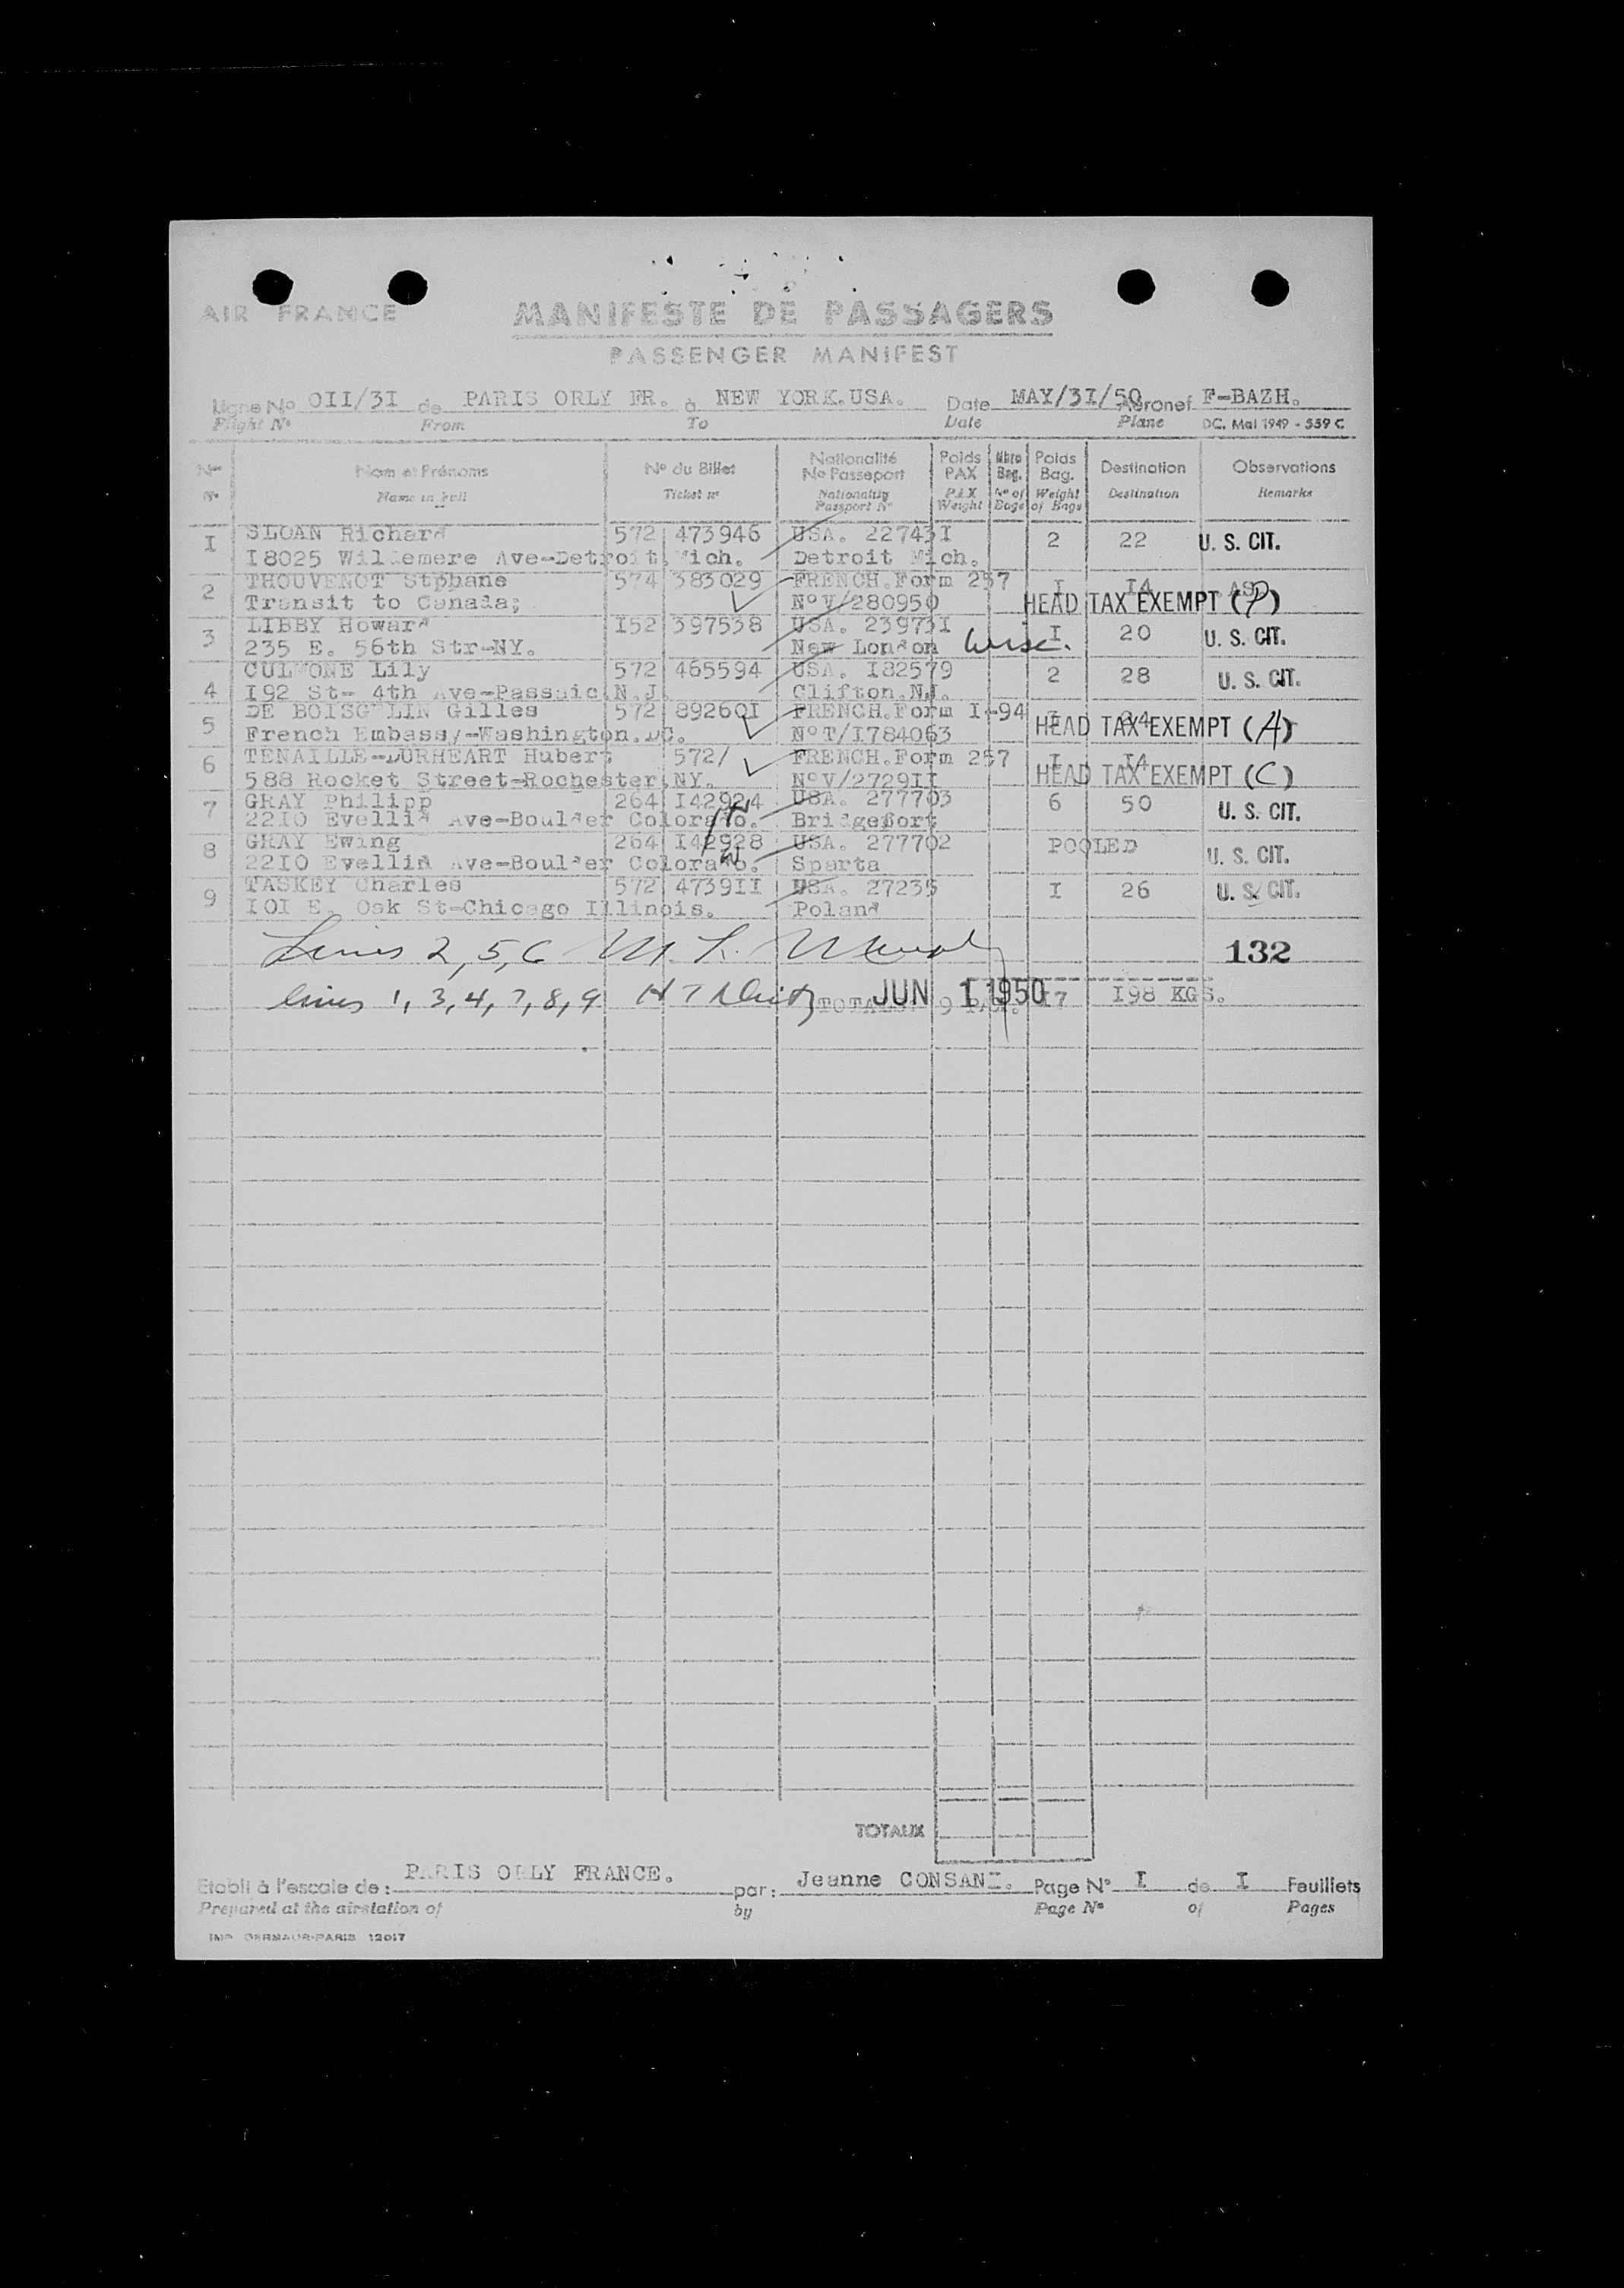 AIR FRANCE
MANIFESTE DE PASSAGERS
PASSENGER MANIFEST
Ligne No OII/3I de PARIS ORLY FR. à NEW YORK.USA. Date MAY/3I/50 Aéronef F-BAZH.
Flight No From To Date Plane DC. Mai 1949 - 559 C
Nos Nom et Prénoms No du Billet Nationalité No Passeport Poids PAX Nbre Bag. Poids Bag. Destination Observations
No Name in full Ticket no Nationality Passport No PAX Weight No of Bags Weight of Bags Destination Remarks
I SLOAN Richard 572 473946 USA. 22743I 2 22 U. S. CIT.
I8025 Willemere Ave-Detroit.Mich. Detroit Mich.
2 THOUVENOT Stphane 574 383029 FRENCH.Form 257 I I4
Transit to Canada; NoV/280950 HEAD TAX EXEMPT (P)
3 LIBBY Howard I52 397538 USA. 23973I I 20 U. S. CIT.
235 E. 56th Str-NY. New London Wisc.
4 Lily 572 465594 USA. I82579 2 28 U. S. CIT.
I92 St- 4th Ave-Passaic.N.J. Clifton.NJ.
5 DE BOISGELIN Gilles 572 89260I FRENCH.Form I-94
French Embassy-Washington.DC. NoT/I784063 HEAD TAX EXEMPT (A)
6 TENAILLE-DURHEART Hubert 572/ FRENCH.Form 257 I I4
588 Rocket Street-Rochester.NY. NoV/2729II HEAD TAX EXEMPT (C)
7 GRAY Philipp 264 I42924 USA. 277703 6 50 U. S. CIT.
22IO Evellid Ave-Boulder Colorado. Bridgeport
8 GRAY Ewing 264 I42928 USA. 277702 POOLED U. S. CIT.
22IO Evellid Ave-Boulder Colorado. Sparta
9 TASKEY Charles 572 4739II USA. 27235 I 26 U. S. CIT.
IOI E. Oak St-Chicago Illinois. Poland
Lines 2, 5, 6 M. L. 132
lines 1, 3, 4, 7, 8, 9 H T TOTALS: 9 PAX. JUN 1 1950 I7 I98 KGS.
TOTAUX
Etabli à l'escale de : PARIS ORLY FRANCE. par : Jeanne Page No I de I Feuillets
Prepared at the airstation of by Page No of Pages
IMP. DERMAUR-PARIS 12017